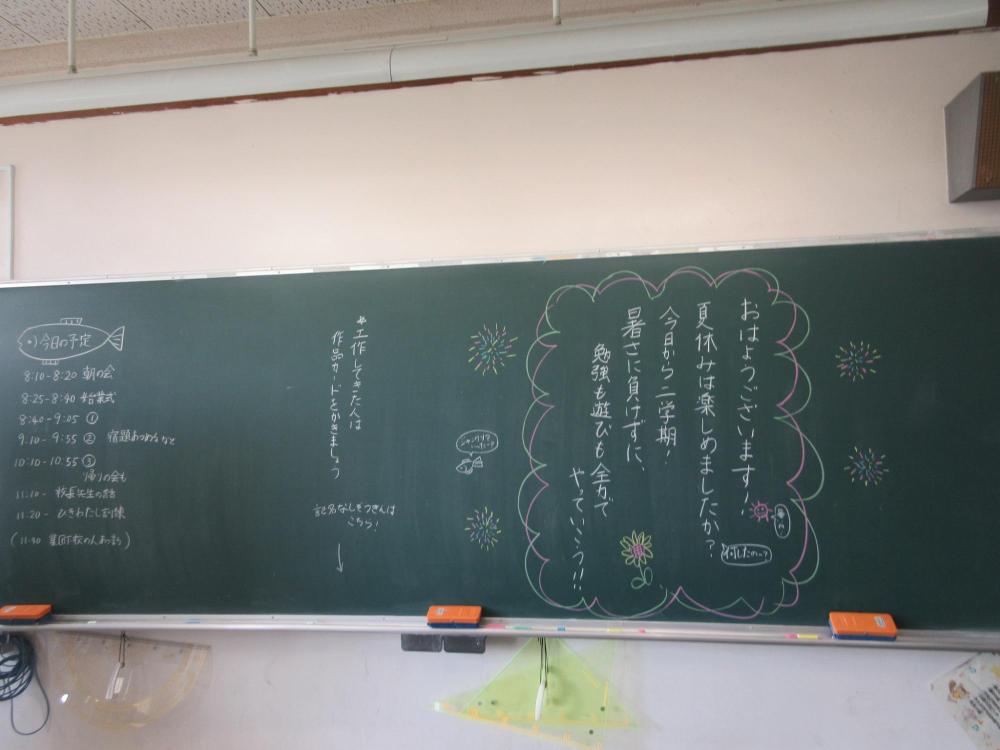 おはようございます！
夏休みは楽しめましたか？
今日から二学期！
暑さに負けずに、
勉強も遊びも全力で
やっていこう!!
何したの〜？
*工作してきた人は
作品カードとかきましょう
記名なしぞうきんは
こちら！
今日の予定
8:10-8:20 朝の会
8:25-8:40 始業式
8:40-9:05 ①
9:10-9:55 ② 宿題あつめなど
10:10-10:55 ③
帰りの会も
11:10- 校長先生の話
11:20- ひきわたし訓練